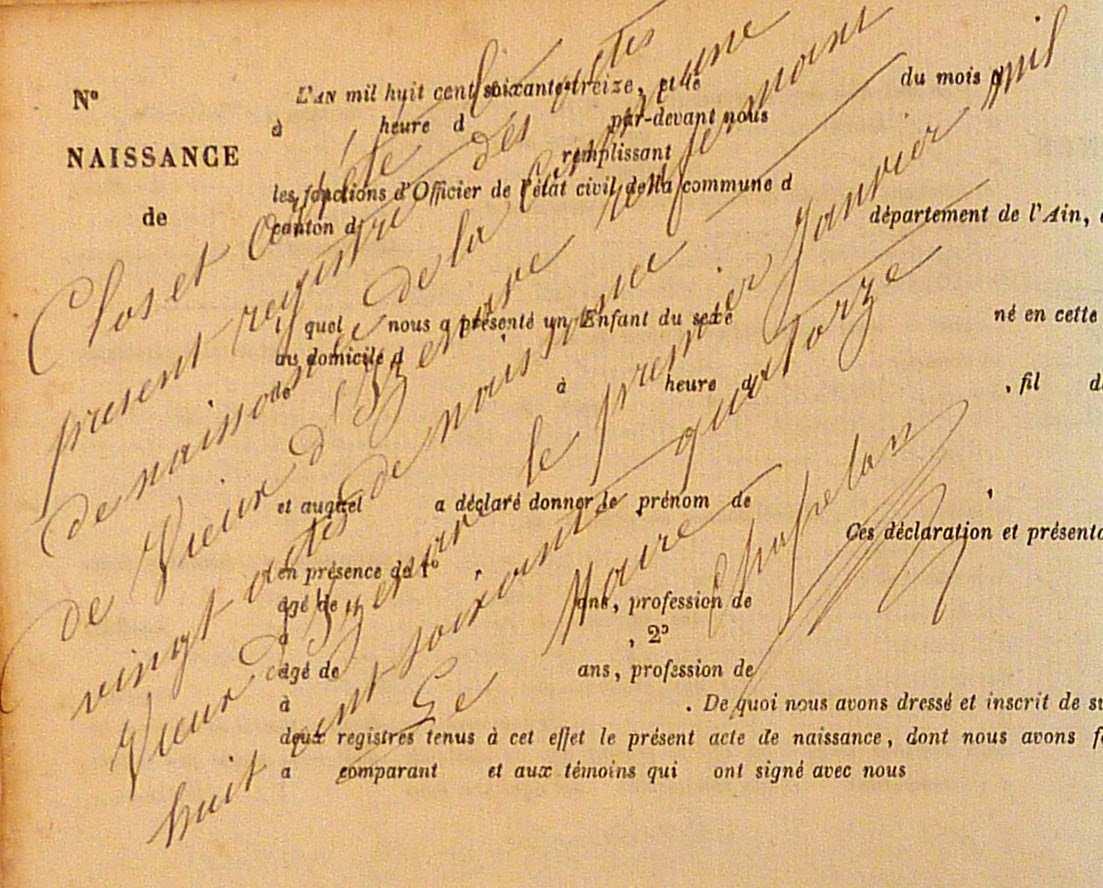 N°
NAISSANCE
de
L'AN mil huit cent soixante-treize, et le du mois d
à heure d par-devant nous
remplissant
les fonctions d'Officier de l'état civil de la commune d
canton d département de l'Ain,
quel nous a présenté un Enfant du sexe né en cette
au domicile d
de à heure d , fil d
et auquel a déclaré donner le prénom de
Ces déclaration et présenta
en présence de 1°
âgé de ans, profession de
à , 2°
âgé de ans, profession de
à . De quoi nous avons dressé et inscrit de su
deux registres tenus à cet effet le présent acte de naissance, dont nous avons f
a comparant et aux témoins qui ont signé avec nous
Clos et arrêté le
present registre des actes
de naissance de la commune
de Vieux d'Izenave renfermant
vingt actes de naissance
Vieux d'Izenave le premier Janvier mil
huit cent soixante quatorze
Le Maire